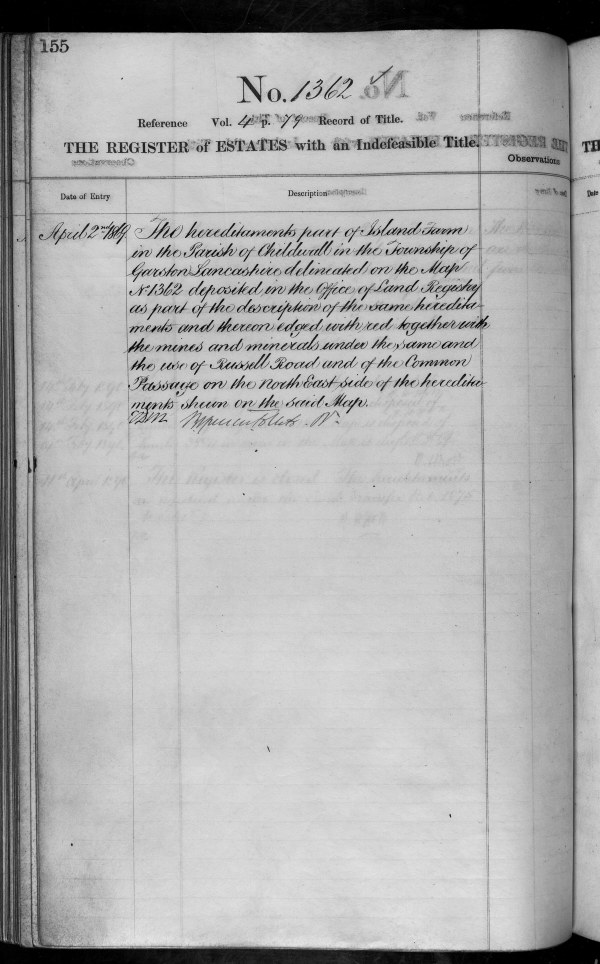 155
No. 1362
Reference Vol. 4 p. 79 Record of Title.
THE REGISTER of ESTATES with an Indefeasible Title.
Observations
Date of Entry
Description
April 2nd 1869
The hereditaments part of Island Farm
in the Parish of Childwall in the Township of
Garston Lancashire delineated on the Map
No 1362 deposited in the Office of Land Registry
as part of the description of the same heredita-
ments and thereon edged with red together with
the mines and minerals under the same and
the use of Russell Road and of the Common
Passage on the North East side of the heredita-
ments shewn on the said Map.